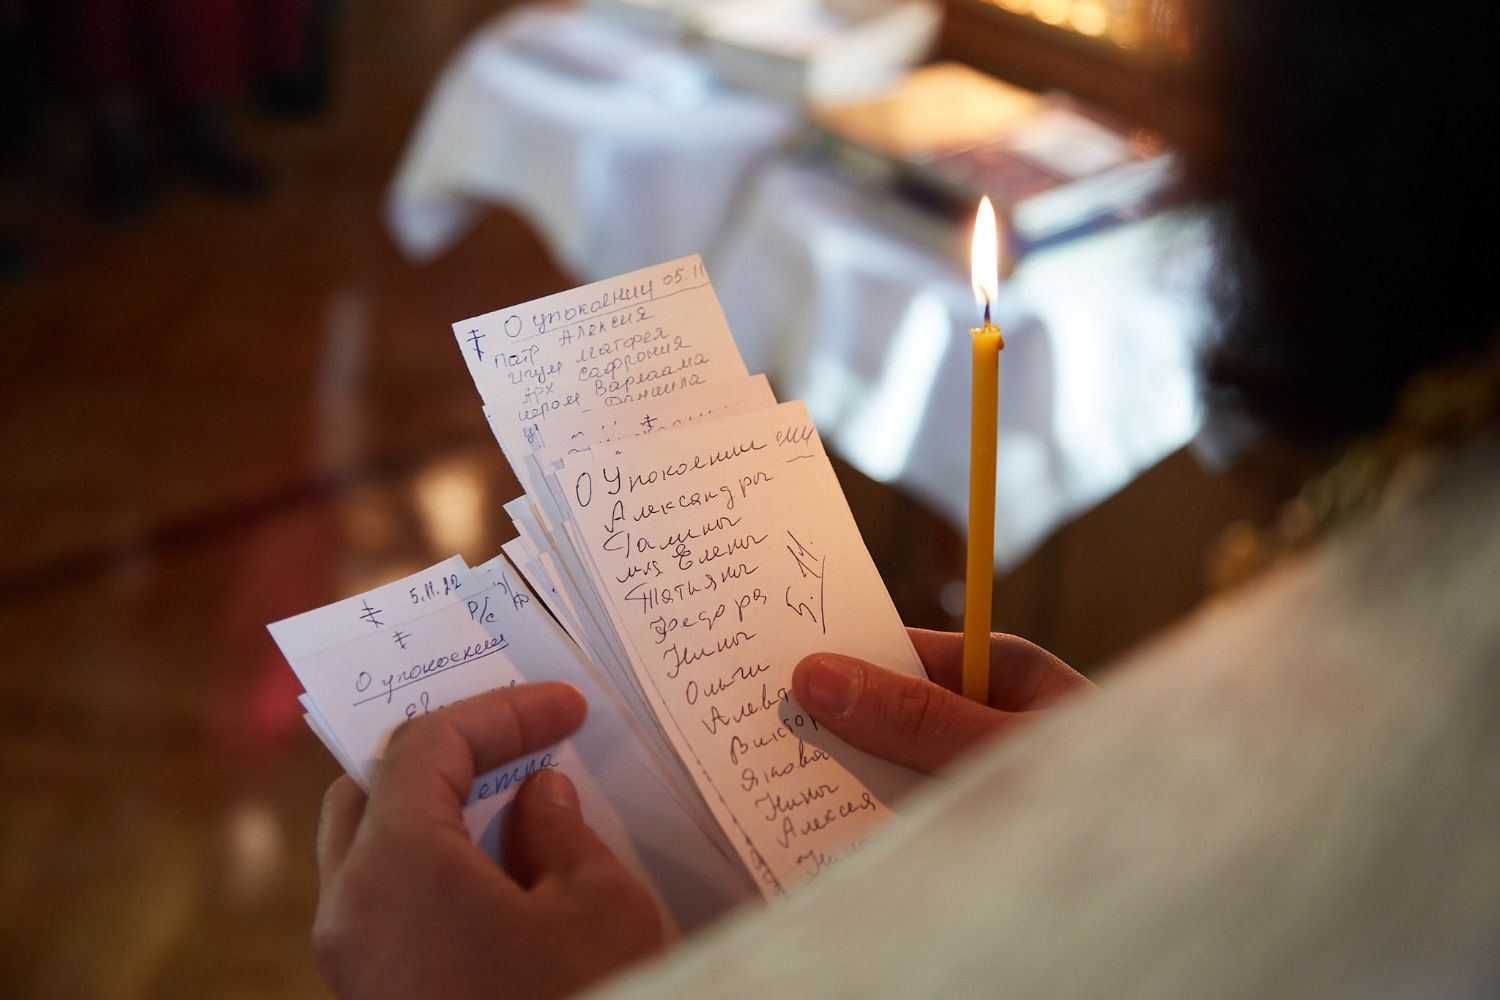 О упокоении 05.11
Патр Алексия
Игум Матфея
Арх Сафрония
иером Варлаама
– Даниила
О Упокоении
Александры
Галины
мл Елены
Татьяны
Федора
Нины
Ольги
Алевт
Виктор
Якова
Нины
Алексея
Нины
5.11.
5.11.22
Р/с
О упокоении